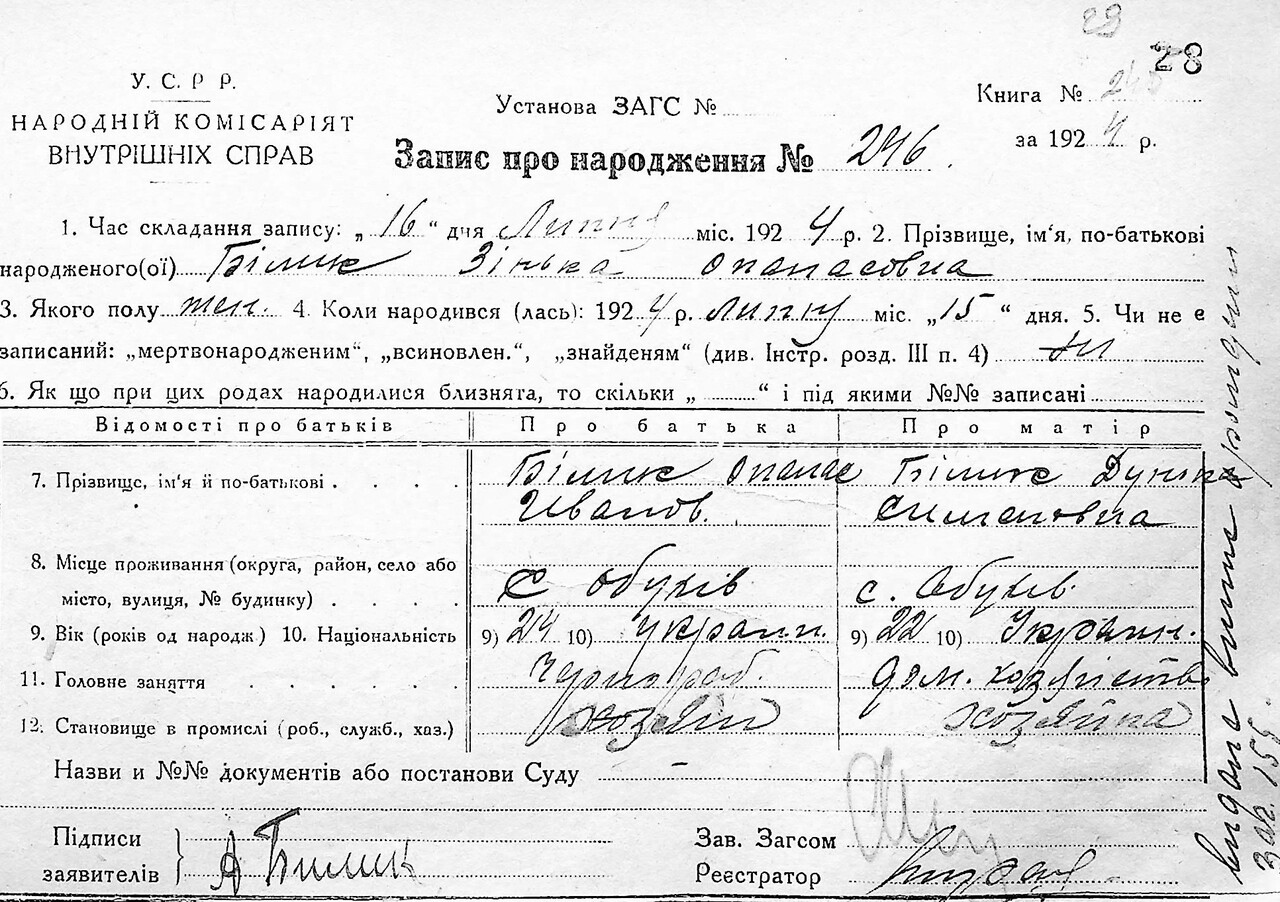 29
28
У. С. Р Р.
НАРОДНІЙ КОМІСАРІЯТ
ВНУТРІШНІХ СПРАВ
Установа ЗАГС №
Книга №
за 1924 р.
Запис про народження № 246.
1. Час складання запису: „16“ дня Липня міс. 1924 р. 2. Прізвище, ім'я, по-батькові
народженого(ої) Білик Зінька Опанасовна
3. Якого полу жен. 4. Коли народився (лась): 1924 р. липня міс. „15“ дня. 5. Чи не є
записаний: „мертвонародженим“, „всиновлен.“, „знайденям“ (див. Інстр. розд. III п. 4) ні
6. Як що при цих родах народилися близнята, то скільки „ “ і під якими №№ записані
Відомості про батьків Про батька Про матір
7. Прізвище, ім'я й по-батькові Білик Опанас Білик Дунька
Иванов. Симановна
8. Місце проживання (округа, район, село або
місто, вулиця, № будинку) с Обухів с. Обухів
9. Вік (років од народж) 10. Національність 9) 24 10) Украин. 9) 22 10) Украин.
11. Головне заняття Чорнораб. дом. хозяйств
12. Становище в промислі (роб., служб., хаз.) Хозяін Хозяйна
Назви и №№ документів або постанови Суду –
Підписи
заявителів А Билик
Зав. Загсом
Реєстратор
видана
155